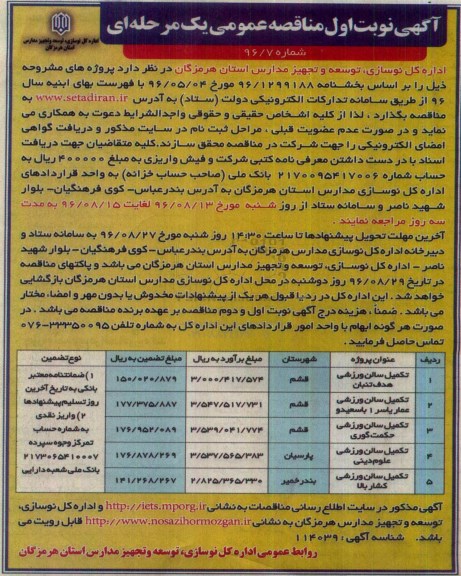 آگهی نوبت اول مناقصه عمومی یک مرحله‌ای
شماره ۹۶/۷
اداره کل نوسازی، توسعه و تجهیز مدارس
استان هرمزگان
اداره کل نوسازی، توسعه و تجهیز مدارس استان هرمزگان در نظر دارد پروژه های مشروحه
ذیل را بر اساس بخشنامه ۹۶/۱۲۹۹۱۸۸ مورخ ۹۶/۰۵/۰۴ با فهرست بهای ابنیه سال
۹۶ از طریق سامانه تدارکات الکترونیکی دولت (ستاد) به آدرس www.setadiran.ir به
مناقصه بگذارد ، لذا از کلیه اشخاص حقیقی و حقوقی واجدالشرایط دعوت به همکاری می
نماید و در صورت عدم عضویت قبلی ، مراحل ثبت نام در سایت مذکور و دریافت گواهی
امضای الکترونیکی را جهت شرکت در مناقصه محقق سازند. کلیه متقاضیان جهت دریافت
اسناد با در دست داشتن معرفی نامه کتبی شرکت و فیش واریزی به مبلغ ۴۰۰۰۰۰ ریال به
حساب شماره ۲۱۷۰۰۹۵۴۱۷۰۰۶ بانک ملی (صاحب حساب خزانه) به واحد قراردادهای
اداره کل نوسازی مدارس استان هرمزگان به آدرس بندرعباس- کوی فرهنگیان- بلوار
شهید ناصر و سامانه ستاد از روز شنبه مورخ ۹۶/۰۸/۱۳ لغایت ۹۶/۰۸/۱۵ به مدت
سه روز مراجعه نمایند .
آخرین مهلت تحویل پیشنهادها تا ساعت ۱۴:۳۰ روز شنبه مورخ ۹۶/۰۸/۲۷ به سامانه ستاد و
دبیرخانه اداره کل نوسازی مدارس هرمزگان به آدرس بندرعباس - کوی فرهنگیان - بلوار شهید
ناصر - اداره کل نوسازی، توسعه و تجهیز مدارس استان هرمزگان می باشد و پاکتهای مناقصه
در تاریخ ۹۶/۰۸/۲۹ روز دوشنبه در محل اداره کل نوسازی مدارس استان هرمزگان بازگشایی
خواهد شد . این اداره کل در رد یا قبول هر یک از پیشنهادات مخدوش یا بدون مهر و امضا، مختار
می باشد . ضمناً ، هزینه درج آگهی نوبت اول و دوم مناقصه بر عهده برنده مناقصه می باشد . در
صورت هر گونه ابهام با واحد امور قراردادهای این اداره کل به شماره تلفن ۳۳۳۵۰۰۹۵-۰۷۶
تماس حاصل فرمایید .
ردیف عنوان پروژه شهرستان مبلغ برآورد به ریال مبلغ تضمین به ریال نوع تضمین
۱ تکمیل سالن ورزشی هدف تنبان قشم ۳/۰۰۰/۴۱۷/۵۷۴ ۱۵۰/۰۲۰/۸۷۹
۲ تکمیل سالن ورزشی عمار یاسر ۱ باسعیدو قشم ۳/۵۴۷/۵۱۷/۷۳۱ ۱۷۷/۳۷۵/۸۸۷
۳ تکمیل سالن ورزشی حکمت گوری قشم ۳/۵۳۹/۰۴۱/۷۷۴ ۱۷۶/۹۵۲/۰۸۹
۴ تکمیل سالن ورزشی علوم دینی پارسیان ۳/۵۳۷/۵۶۵/۳۸۳ ۱۷۶/۸۷۸/۲۶۹
۵ تکمیل سالن ورزشی کشار بالا بندرخمیر ۲/۸۲۵/۳۶۵/۳۳۰ ۱۴۱/۲۶۸/۲۶۷
۱) ضمانتنامه معتبر
بانکی به تاریخ آخرین
روز تسلیم پیشنهادها
۲) واریز نقدی
به شماره حساب
تمرکز وجوه سپرده
۲۱۷۳۰۶۵۴۱۰۰۰۷
بانک ملی شعبه دارایی
آگهی مذکور در سایت اطلاع رسانی مناقصات به نشانی http://iets.mporg.ir و اداره کل نوسازی،
توسعه و تجهیز مدارس هرمزگان به نشانی http://www.nosazihormozgan.ir قابل رویت می
باشد. شناسه آگهی : ۱۱۴۰۳۹
روابط عمومی اداره کل نوسازی، توسعه و تجهیز مدارس استان هرمزگان